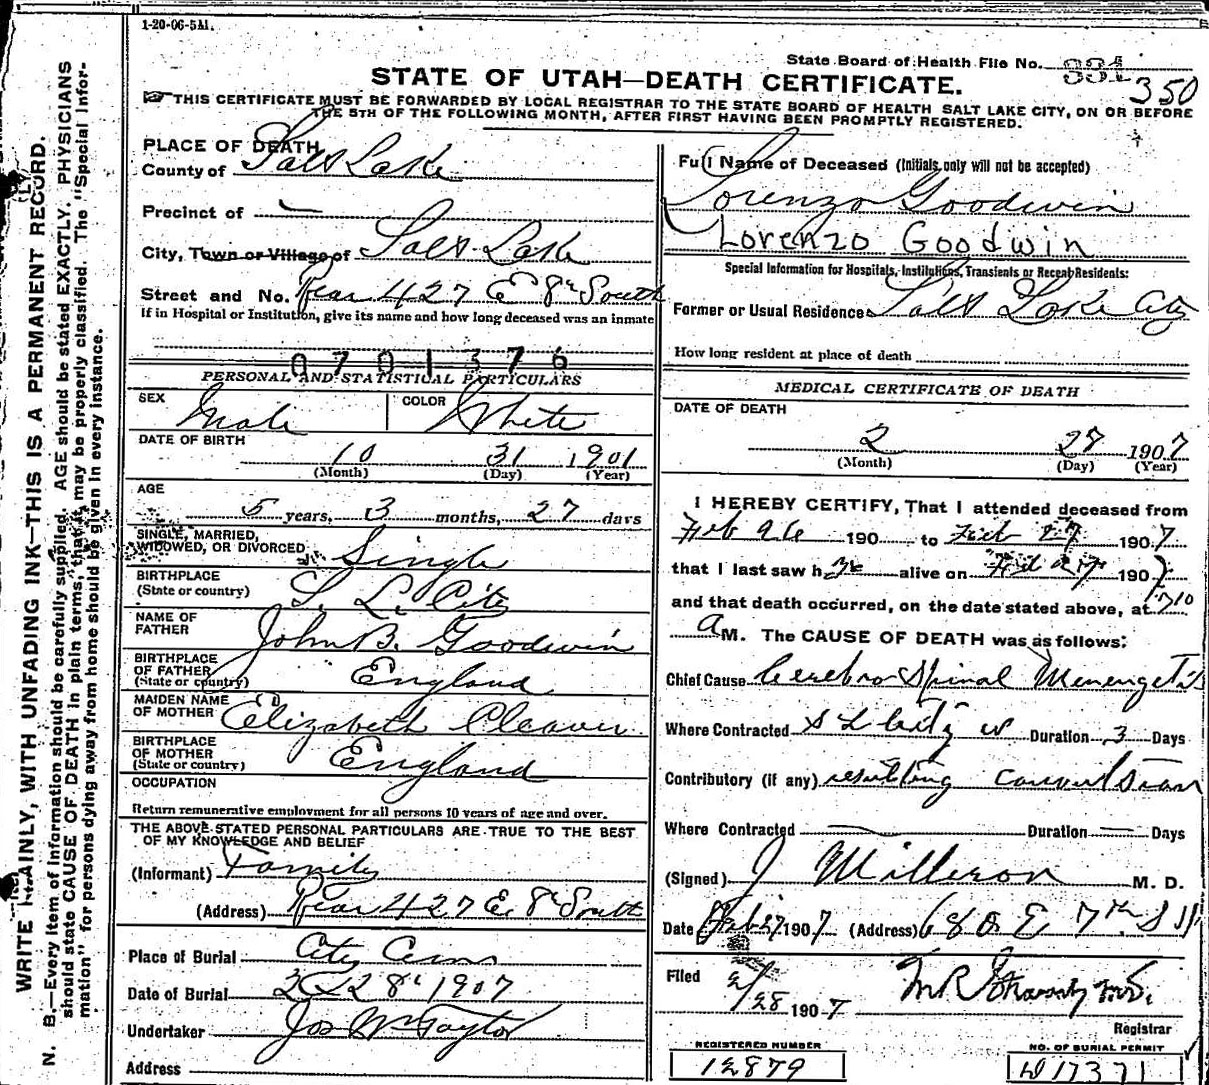 1-20-06-5M.
State Board of Health File No. 331
350
STATE OF UTAH—DEATH CERTIFICATE.
THIS CERTIFICATE MUST BE FORWARDED BY LOCAL REGISTRAR TO THE STATE BOARD OF HEALTH SALT LAKE CITY, ON OR BEFORE
THE 5TH OF THE FOLLOWING MONTH, AFTER FIRST HAVING BEEN PROMPTLY REGISTERED.
WRITE PLAINLY, WITH UNFADING INK—THIS IS A PERMANENT RECORD.
N. B.—Every item of information should be carefully supplied. AGE should be stated EXACTLY. PHYSICIANS
should state CAUSE OF DEATH in plain terms, that it may be properly classified. The "Special Infor-
mation" for persons dying away from home should be given in every instance.
PLACE OF DEATH
County of Salt Lake
Precinct of —
City, Town or Village of Salt Lake
Street and No. Rear 427 E 8th South
If in Hospital or Institution, give its name and how long deceased was an inmate
0701376
PERSONAL AND STATISTICAL PARTICULARS
SEX Male COLOR White
DATE OF BIRTH
10 31 1901
(Month) (Day) (Year)
AGE
5 years, 3 months, 27 days
SINGLE, MARRIED,
WIDOWED, OR DIVORCED Single
BIRTHPLACE
(State or country) S. L. City
NAME OF
FATHER John B. Goodwin
BIRTHPLACE
OF FATHER
(State or country) England
MAIDEN NAME
OF MOTHER Elizabeth Cleaver
BIRTHPLACE
OF MOTHER
(State or country) England
OCCUPATION
Return remunerative employment for all persons 10 years of age and over.
THE ABOVE STATED PERSONAL PARTICULARS ARE TRUE TO THE BEST
OF MY KNOWLEDGE AND BELIEF
(Informant) Family
(Address) Rear 427 E. 8th South
Place of Burial City Cem
Date of Burial 2 28th 1907
Undertaker Jos Wm Taylor
Address
Full Name of Deceased (Initials only will not be accepted)
Lorenzo Goodwin
Lorenzo Goodwin
Special Information for Hospitals, Institutions, Transients or Recent Residents:
Former or Usual Residence Salt Lake City
How long resident at place of death
MEDICAL CERTIFICATE OF DEATH
DATE OF DEATH
2 27 1907
(Month) (Day) (Year)
I HEREBY CERTIFY, That I attended deceased from
Feb 26 190 to Feb 27 1907
that I last saw h alive on Feb 27 1907
and that death occurred, on the date stated above, at 710
a M. The CAUSE OF DEATH was as follows:
Chief Cause Cerebro Spinal Menengetis
Where Contracted S L City Duration 3 Days
Contributory (if any) resulting convulsion
Where Contracted — Duration — Days
(Signed) J Milleron M. D.
Date Feb 27 1907 (Address) 680 E 7th S
Filed 2/28 1907
Registrar
REGISTERED NUMBER
12879
NO. OF BURIAL PERMIT
17371